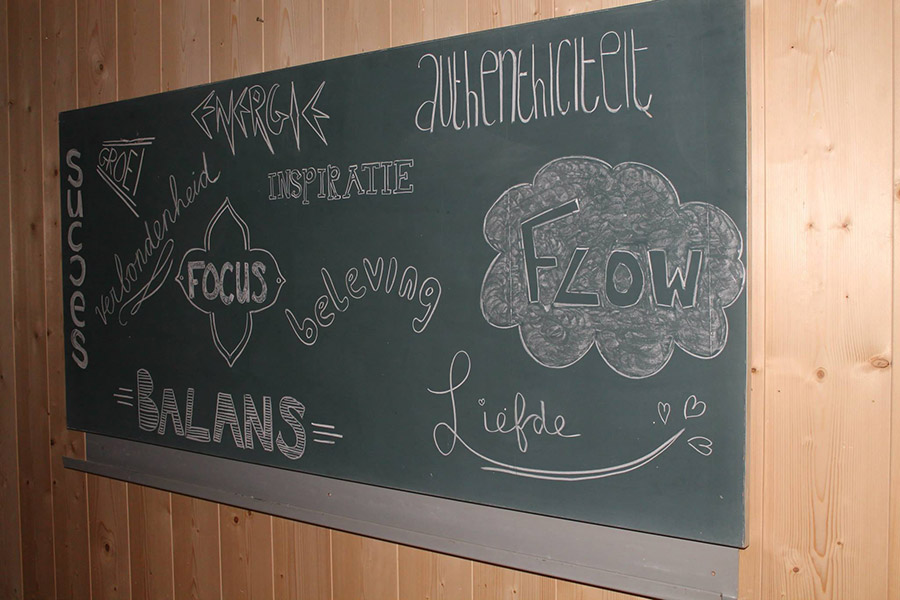 ENERGIE
authenthiciteit
succes
GROEI
verbondenheid
INSPIRATIE
FOCUS
beleving
FLOW
BALANS
Liefde